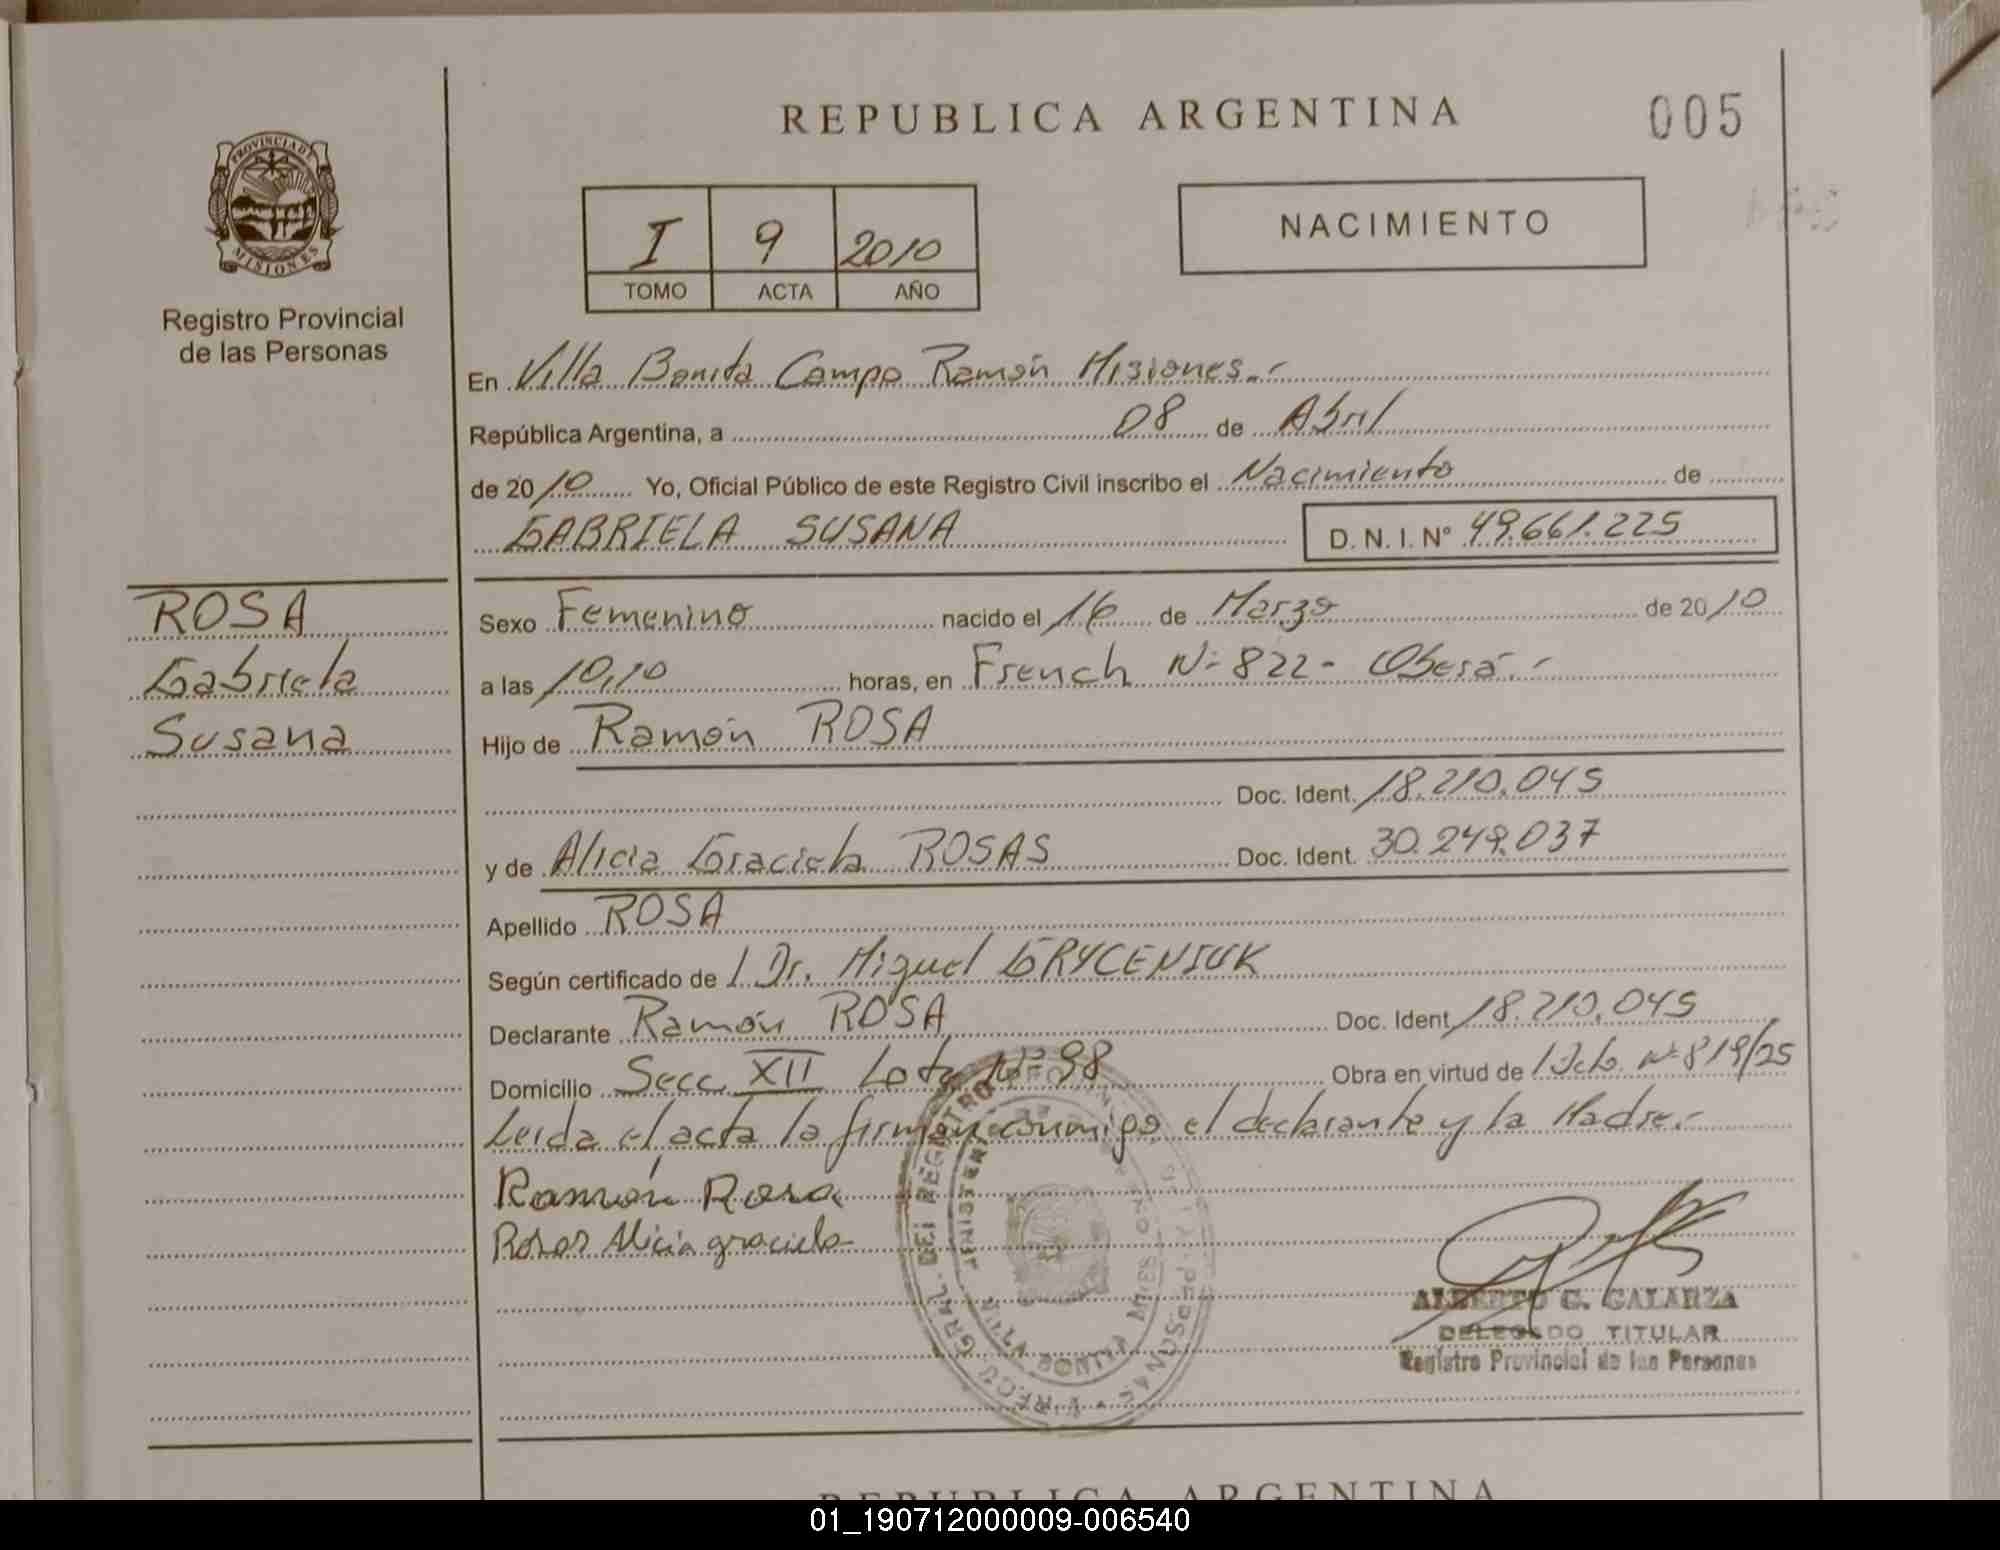 REPUBLICA ARGENTINA
005
PROVINCIA DE
MISIONES
Registro Provincial
de las Personas
I 9 2010
TOMO ACTA AÑO
NACIMIENTO
En Villa Bonita Campo Ramón Misiones.-
República Argentina, a 08 de Abril
de 2010 Yo, Oficial Público de este Registro Civil inscribo el Nacimiento de
GABRIELA SUSANA D. N. I. Nº 49.661.225
ROSA
Gabriela
Susana
Sexo Femenino nacido el 16 de Marzo de 2010
a las 10,10 horas, en French Nº 822- Oberá.-
Hijo de Ramón ROSA
Doc. Ident. 18.210.045
y de Alicia Graciela ROSAS Doc. Ident. 30.249.037
Apellido ROSA
Según certificado de / Dr. Miguel GRYCENIUK
Declarante Ramón ROSA Doc. Ident. 18.210.045
Domicilio Secc. XII Lote Nº 98 Obra en virtud de / Dcto. Nº 819/25
Leida el acta la firman conmigo el declarante y la Madre.-
Ramón Rosa
Rosas Alicia graciela
ALBERTO G. GALARZA
DELEGADO TITULAR
Registro Provincial de las Personas
REPUBLICA ARGENTINA
01_190712000009-006540